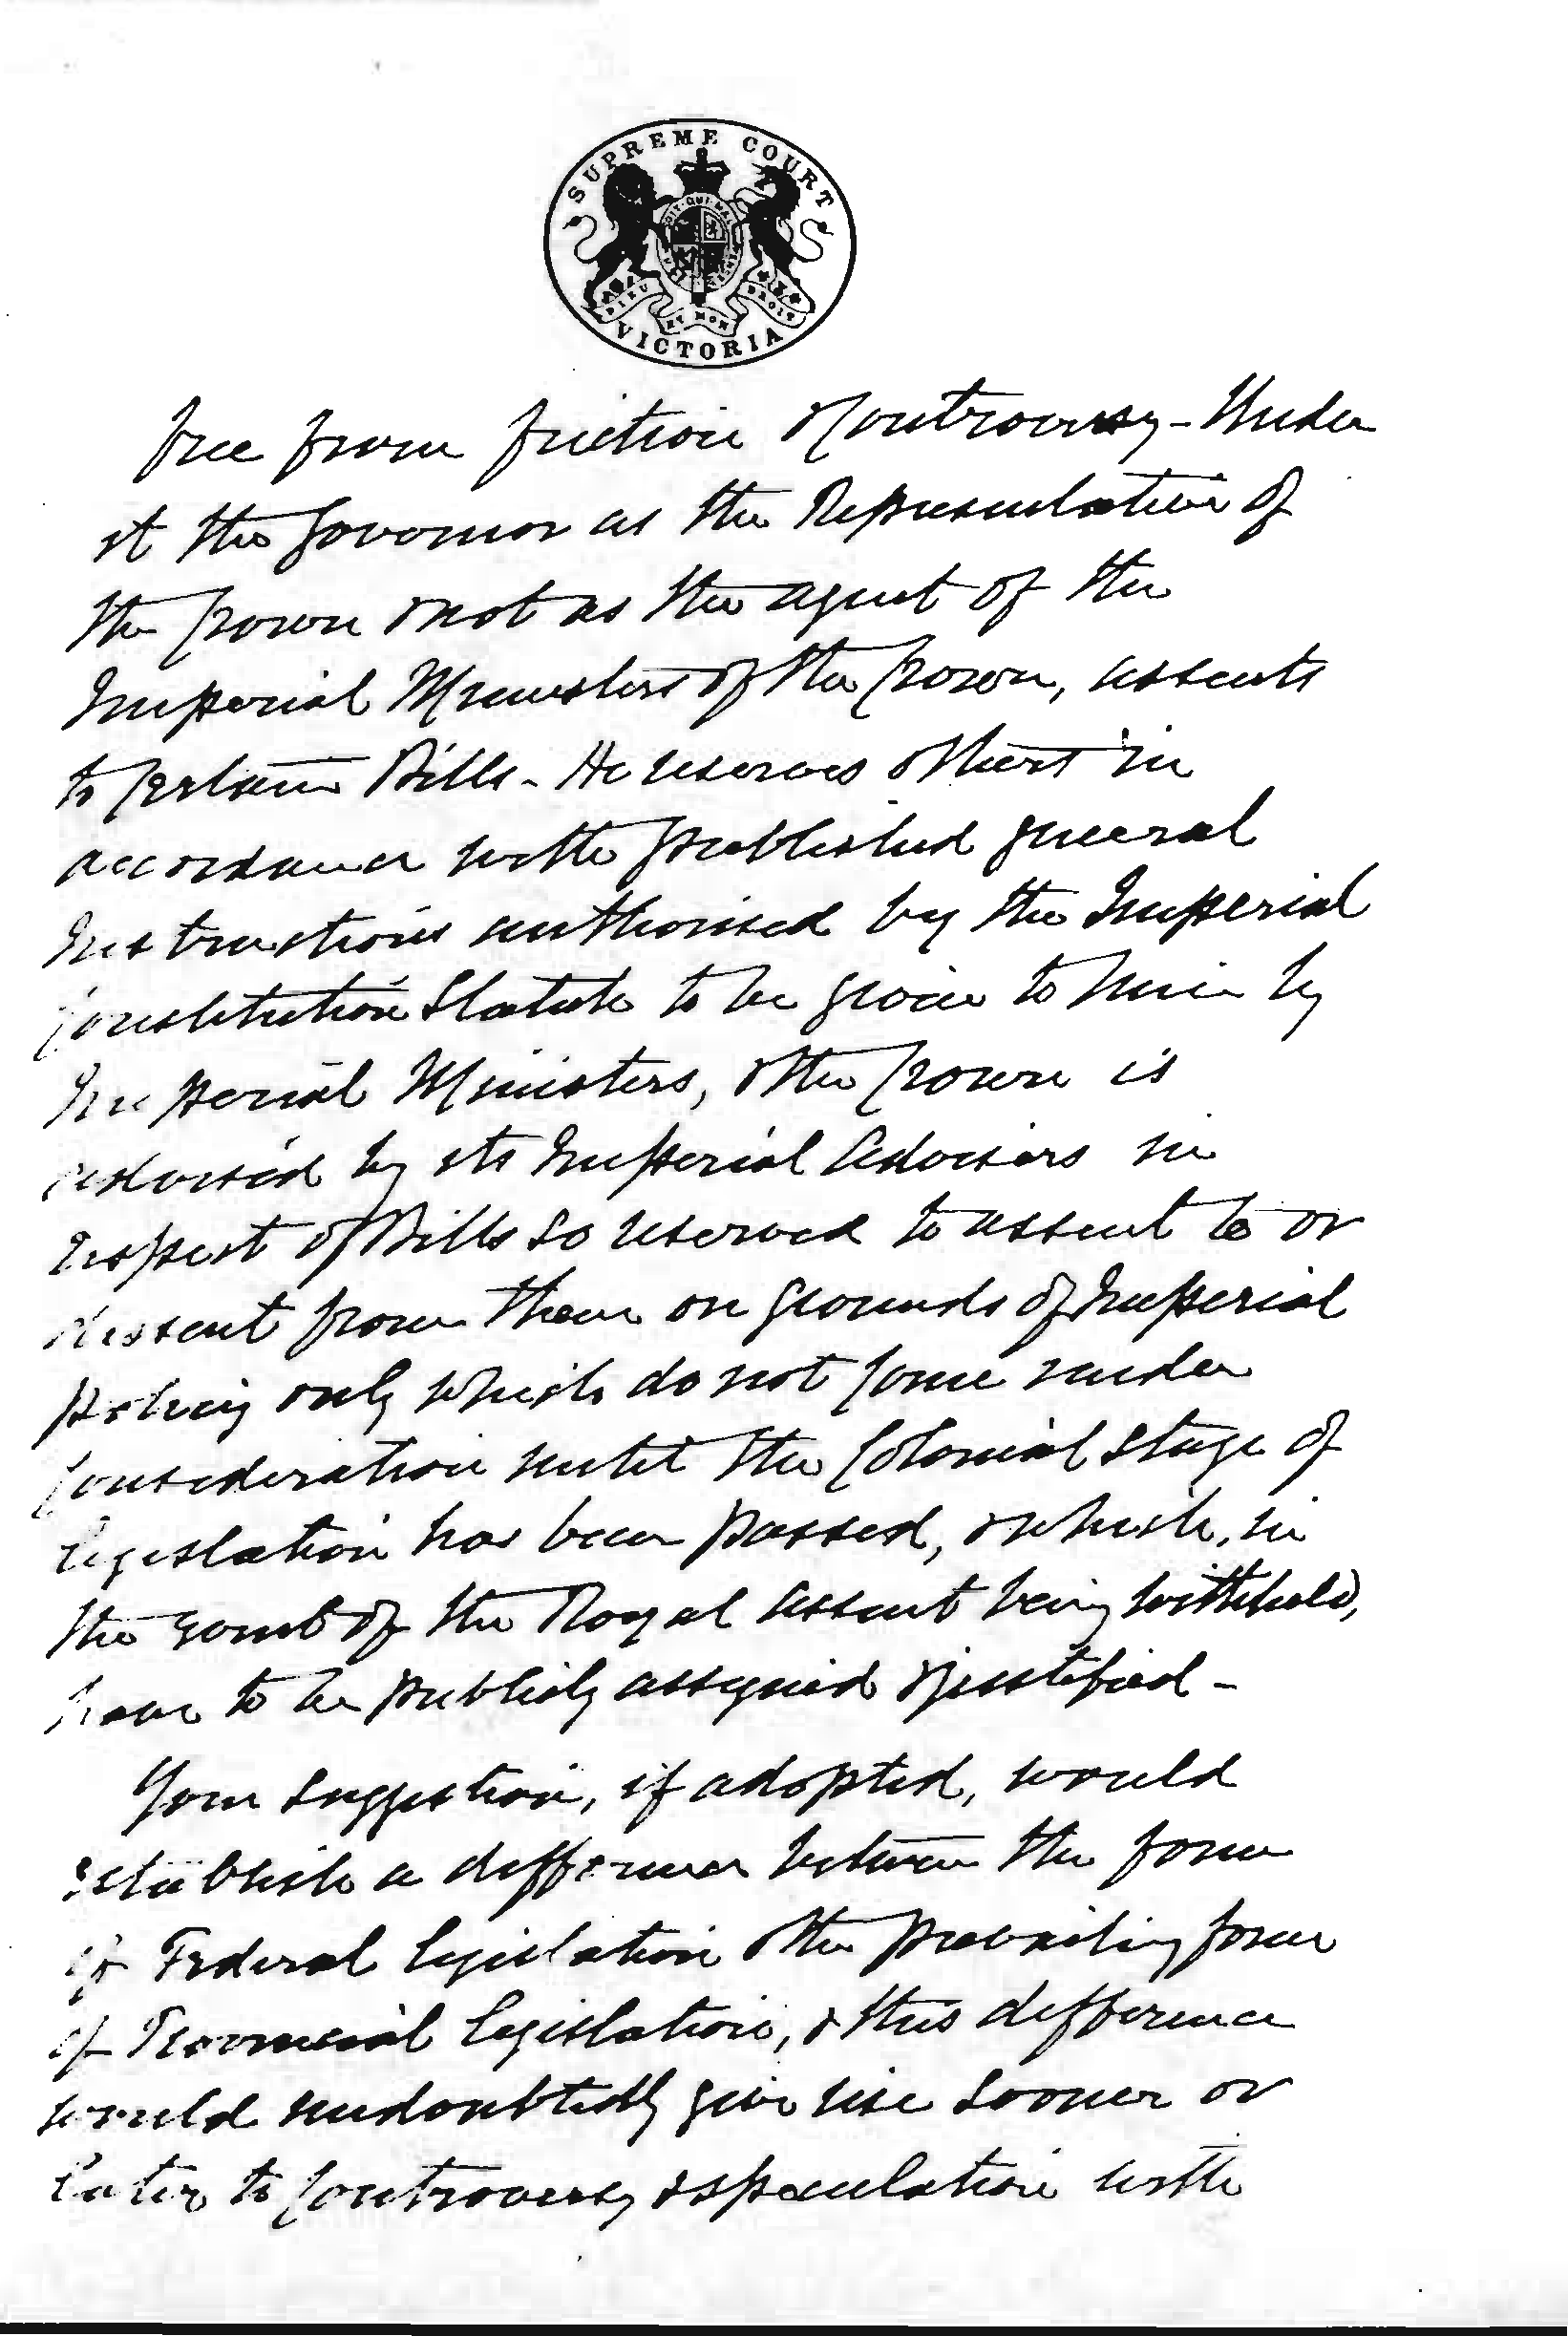 SUPREME COURT
DIEU ET MON DROIT
VICTORIA
free from friction & Controversy - Under
it the Governor as the Representative of
the Crown & not as the agent of the
Imperial Ministers of the Crown, assents
to Certain Bills - He reserves others in
accordance with published general
Instructions authorised by the Imperial
Constitution Statute to be given to him by
Imperial Ministers, & the Crown is
advised by its Imperial Advisers in
respect of Bills so reserved to assent to or
dissent from them on grounds of Imperial
policy only which do not Come under
Consideration until the Colonial stage of
legislation has been passed, & which, in
the event of the Royal assent being withheld,
have to be publicly assigned & justified -
Your suggestion, if adopted, would
establish a difference between the form
of Federal legislation & the prevailing form
of Provincial legislation, & this difference
would undoubtedly give rise sooner or
later to Controversy & speculation with